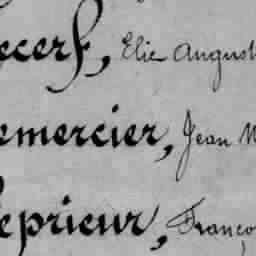 ecerf, Elie August
emercier, Jean M
eprieur, Franço